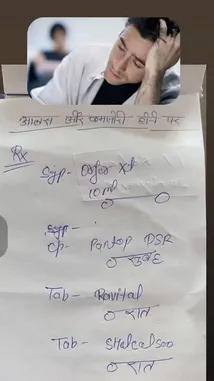 आलस और कमजोरी होने पर
Rx
Syp- Orofer Xt
10ml
Syp -
Cp- Pantop DSR
सुबह
Tab- Revital
रात
Tab- Shelcal500
रात